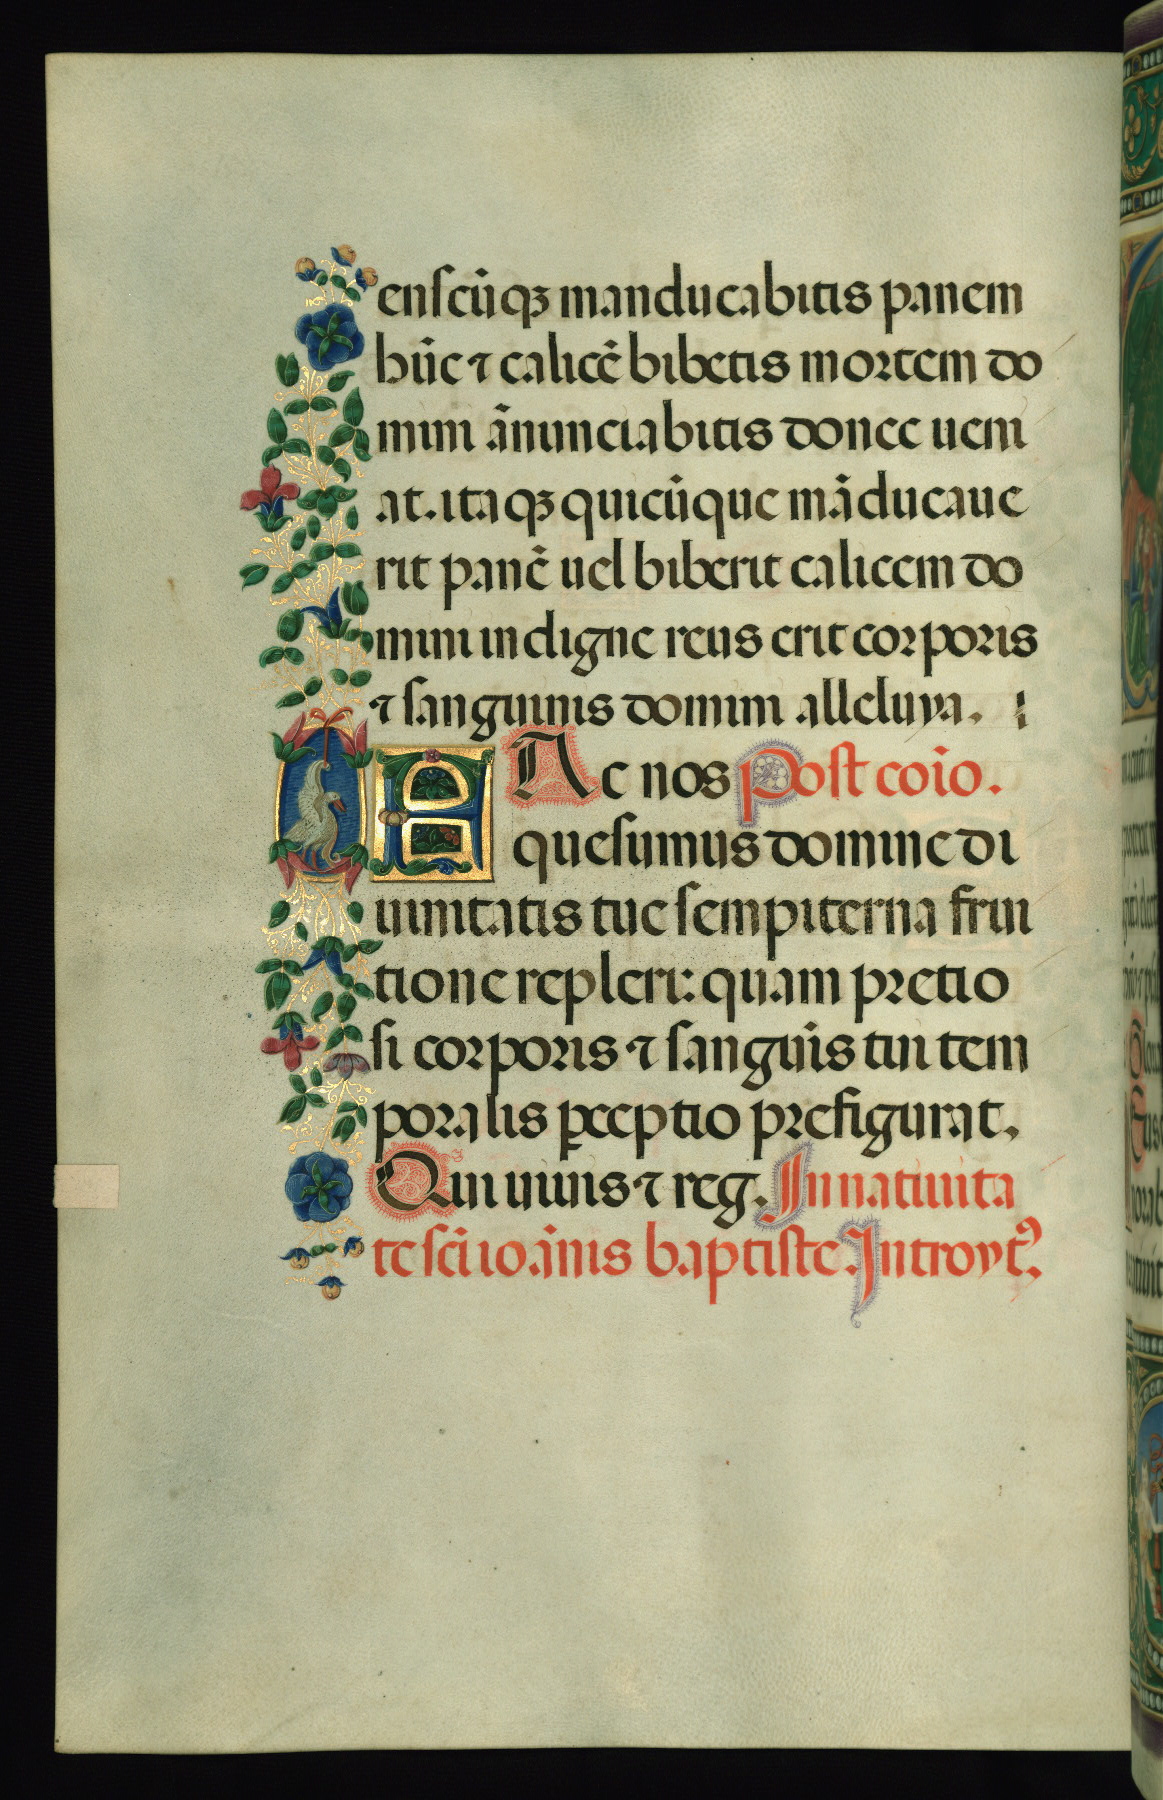 enscūqꝫ manducabitis panem
hūc ⁊ calicē bibetis mortem do
mini ānunciabitis donec ueni
at. itaqꝫ quicūque māducaue
rit panē uel biberit calicem do
mini indigne reus erit corporis
⁊ sanguinis domini alleluya.
FAc nos Post coīo.
quesumus domine di
uinitatis tue sempiterna frui
tione repleri: quam pretio
si corporis ⁊ sanguīs tui tem
poralis ꝑceptio prefigurat.
Qui uiuis ⁊ reg. In natiuita
te scī ioānis baptiste. Introytꝰ.